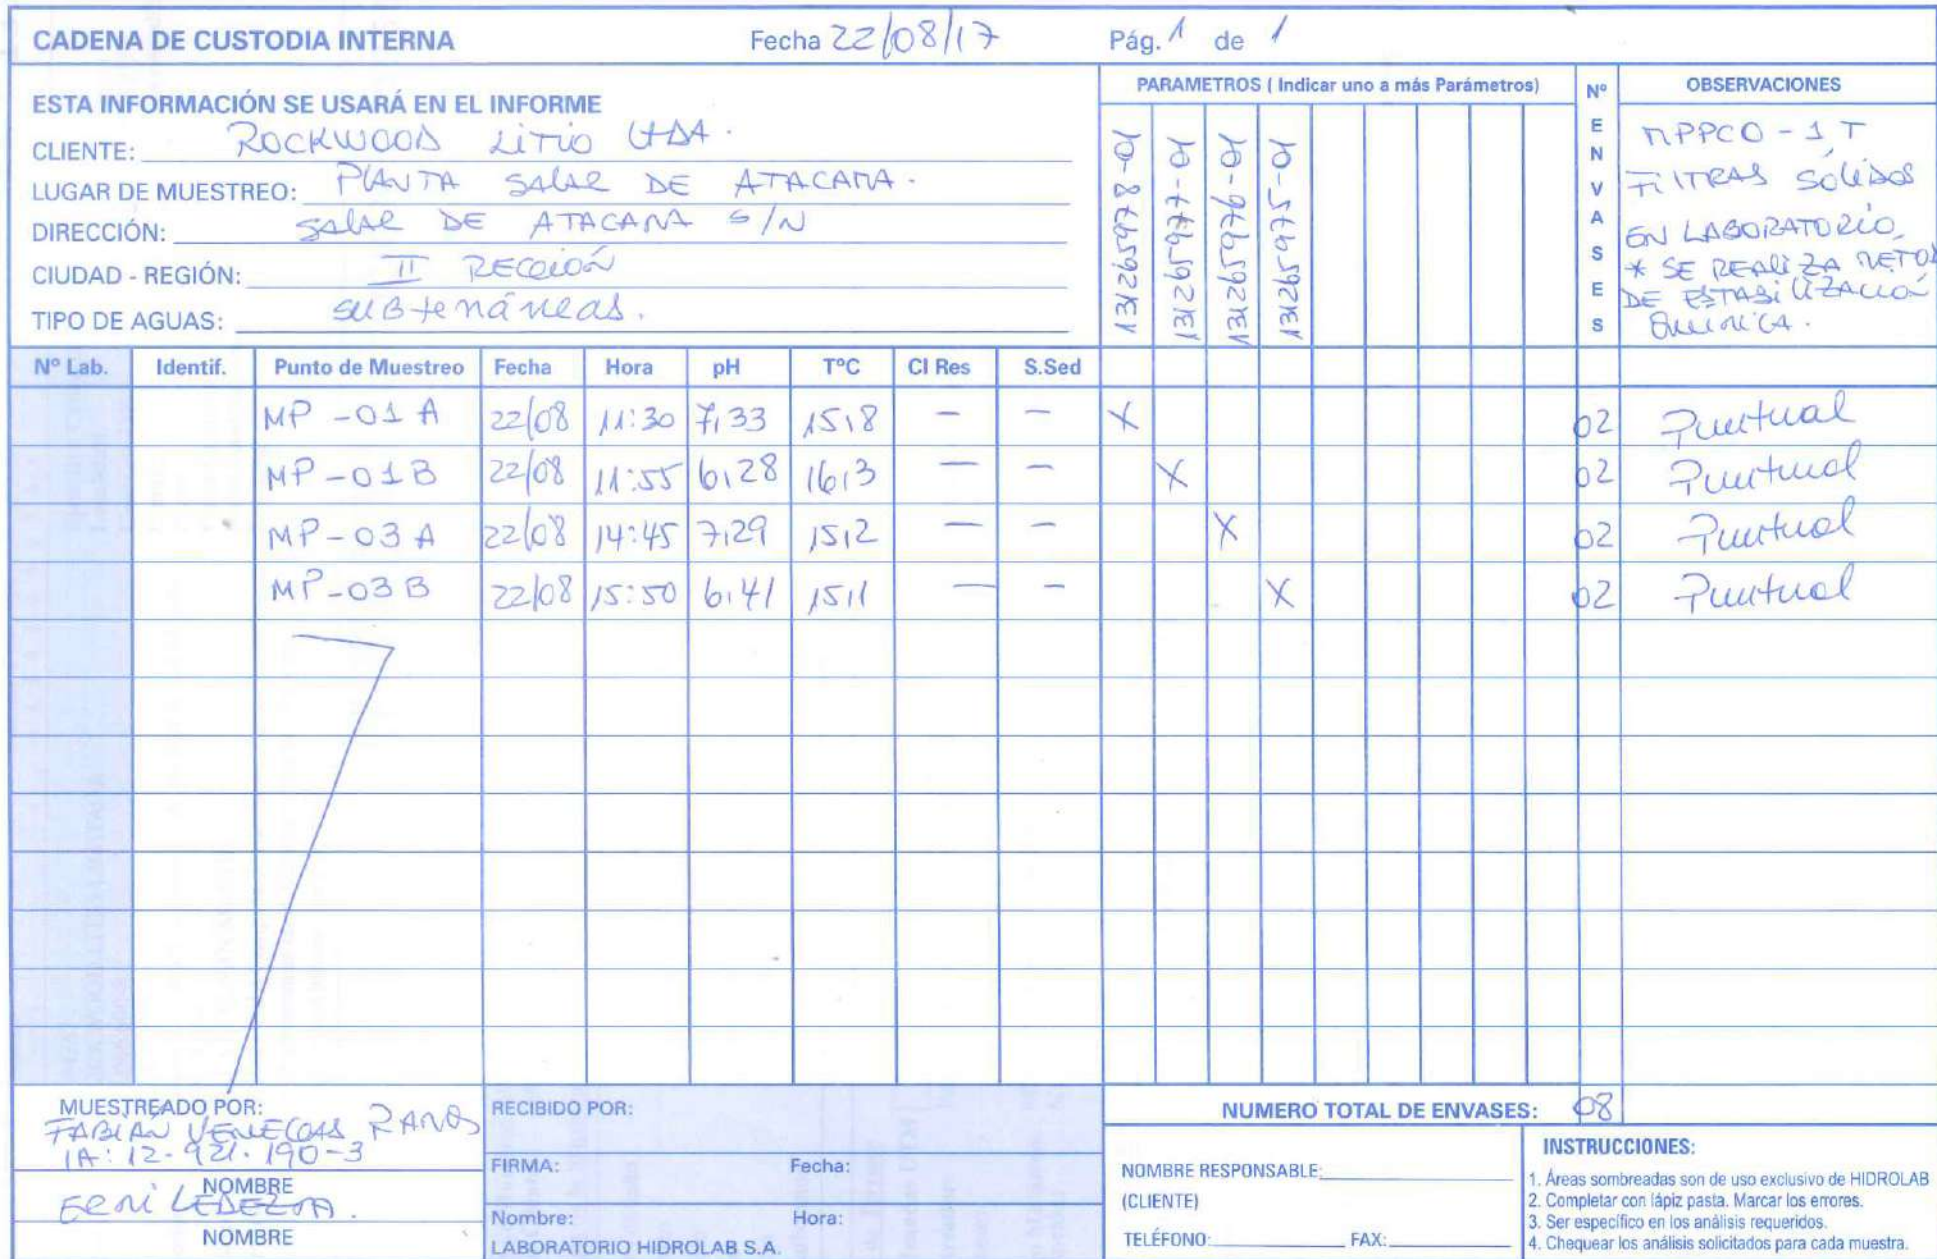 CADENA DE CUSTODIA INTERNA Fecha 22/08/17 Pág. 1 de 1
ESTA INFORMACIÓN SE USARÁ EN EL INFORME
CLIENTE: ROCKWOOD LITIO LTDA.
LUGAR DE MUESTREO: PLANTA SALAR DE ATACAMA.
DIRECCIÓN: SALAR DE ATACAMA S/N
CIUDAD - REGIÓN: II REGIÓN
TIPO DE AGUAS: SUBterráneas.
PARAMETROS ( Indicar uno a más Parámetros)
131265978-01
131265977-01
131265976-01
131265975-01
Nº ENVASES
OBSERVACIONES
MPPCO - 1 T
FILTRAS SÓLIDOS
EN LABORATORIO,
* SE REALIZA METOD
DE ESTABILIZACIÓN
QUIMICA.
Nº Lab. Identif. Punto de Muestreo Fecha Hora pH TºC Cl Res S.Sed
MP -01 A 22/08 11:30 7,33 15,8 — — X 02 Puntual
MP -01 B 22/08 11:55 6,28 16,3 — — X 02 Puntual
MP - 03 A 22/08 14:45 7,29 15,2 — — X 02 Puntual
MP-03 B 22/08 15:50 6,41 15,1 — — X 02 Puntual
MUESTREADO POR:
FABIÁN VENEGAS RAMOS
IA: 12.921.190-3
NOMBRE
LEDEZMA.
NOMBRE
RECIBIDO POR:
FIRMA: Fecha:
Nombre: Hora:
LABORATORIO HIDROLAB S.A.
NUMERO TOTAL DE ENVASES: 08
NOMBRE RESPONSABLE:
(CLIENTE)
TELÉFONO: FAX:
INSTRUCCIONES:
1. Áreas sombreadas son de uso exclusivo de HIDROLAB
2. Completar con lápiz pasta. Marcar los errores.
3. Ser específico en los análisis requeridos.
4. Chequear los análisis solicitados para cada muestra.